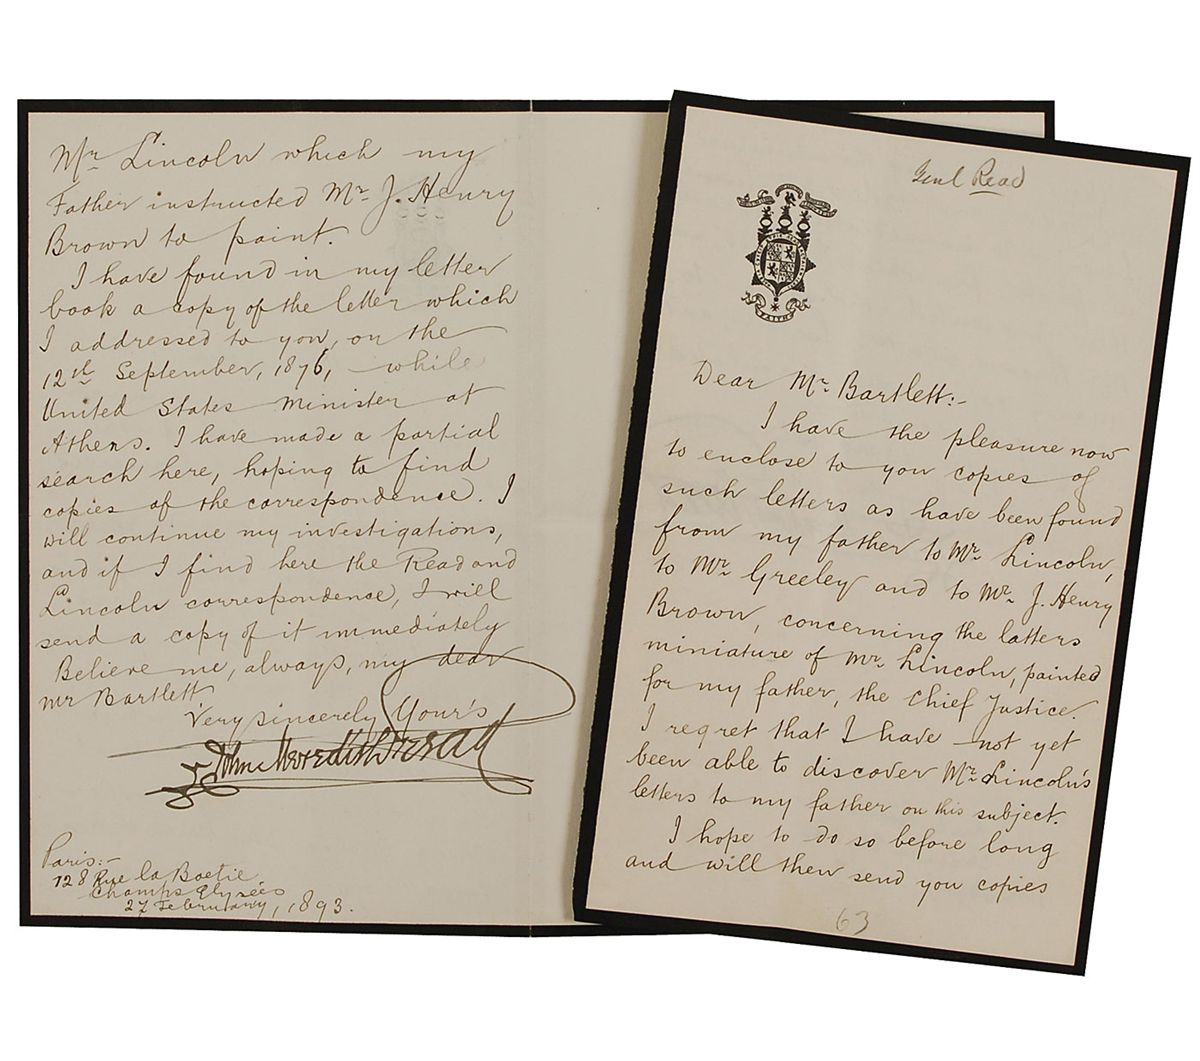 Genl Read
FAITH
Dear Mr. Bartlett:-
I have the pleasure now
to enclose to you copies of
such letters as have been found
from my father to Mr. Lincoln,
to Mr. Greeley and to Mr. J. Henry
Brown, concerning the latters
miniature of Mr. Lincoln, painted
for my father, the Chief Justice.
I regret that I have not yet
been able to discover Mr. Lincoln's
letters to my father on this subject.
I hope to do so before long
and will then send you copies
63
Mr. Lincoln which my
Father instructed Mr. J. Henry
Brown to paint.
I have found in my letter
book a copy of the letter which
I addressed to you, on the
12th September, 1876, while
United States Minister at
Athens. I have made a partial
search here, hoping to find
copies of the correspondence. I
will continue my investigations,
and if I find here the Read and
Lincoln correspondence, I will
send a copy of it immediately
Believe me, always, my dear
Mr Bartlett
Very sincerely Your's
John Meredith Read
Paris:-
128 Rue la Boetie
Champs Elysées
27 February, 1893.